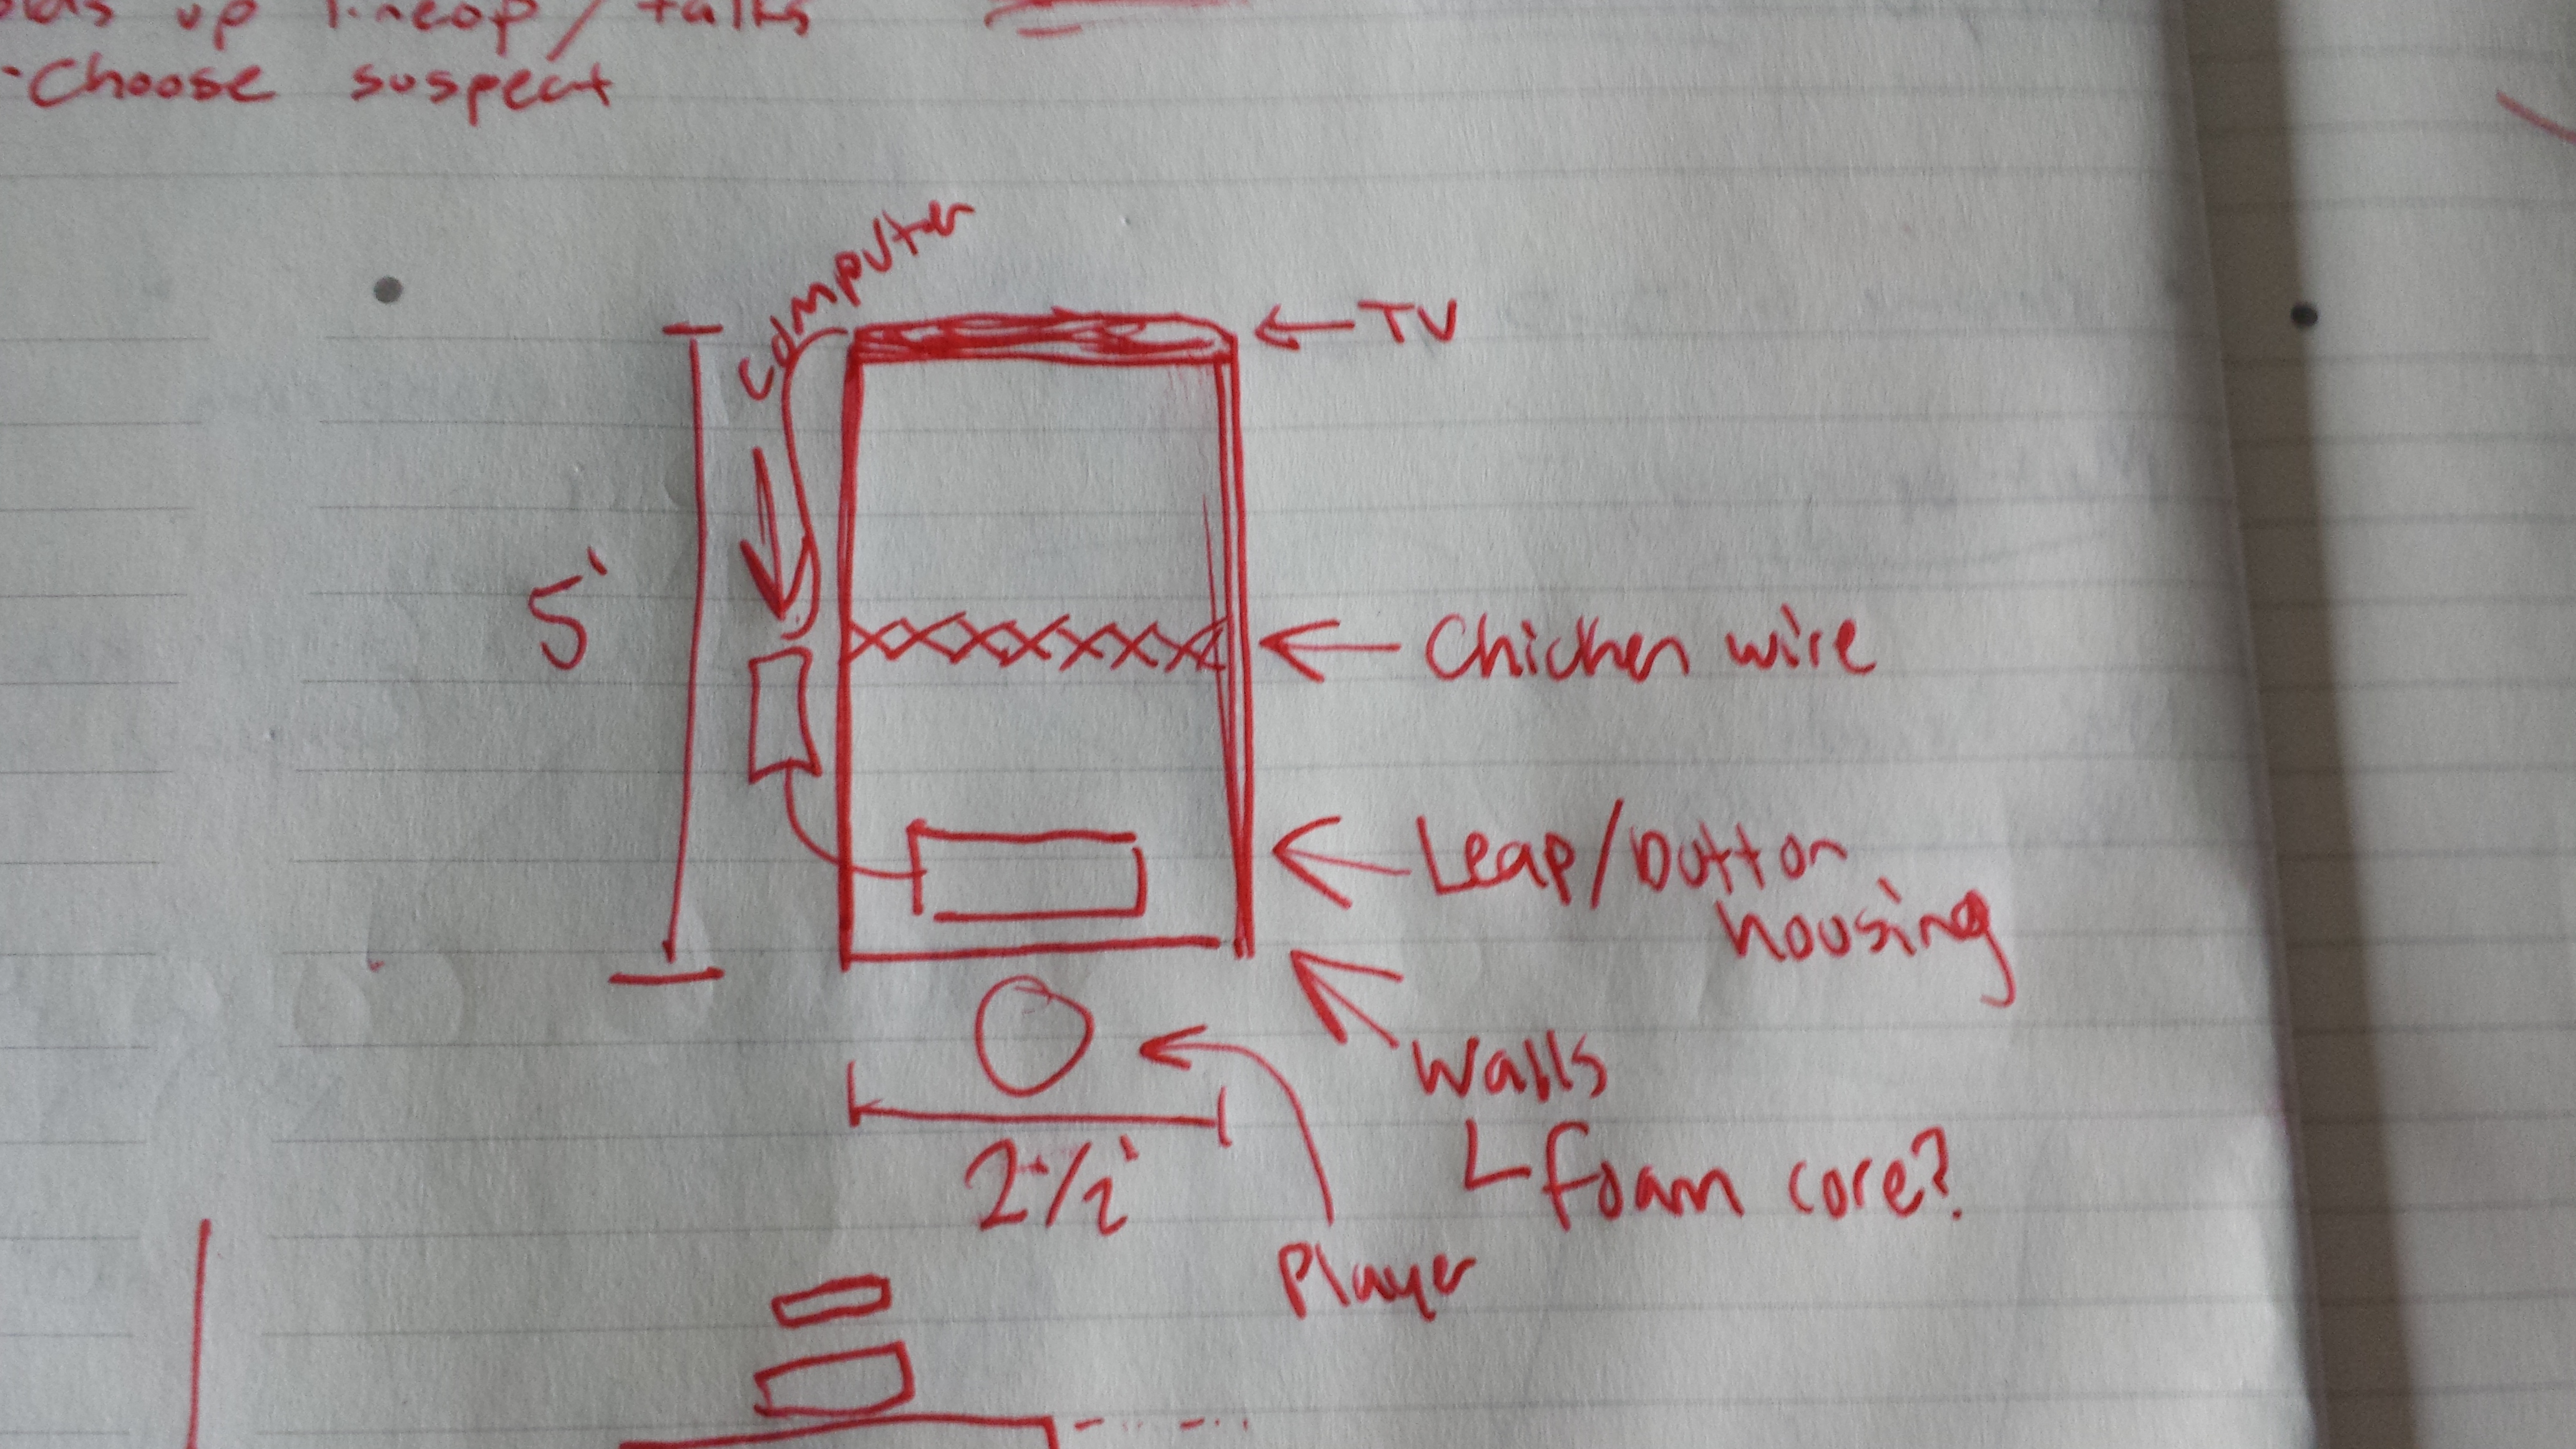 up lineup/talks
·Choose suspect
computer
←TV
5'
←Chicken wire
←Leap/button
housing
Walls
└foam core?
2 1/2'
Player